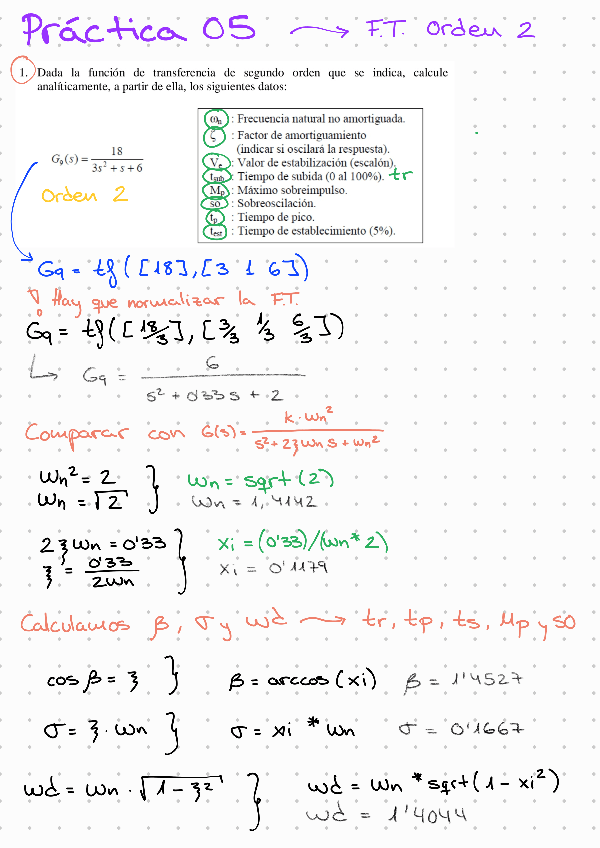 Práctica 05 → F.T. Orden 2
1. Dada la función de transferencia de segundo orden que se indica, calcule
analíticamente, a partir de ella, los siguientes datos:
ωn : Frecuencia natural no amortiguada.
ζ : Factor de amortiguamiento
(indicar si oscilará la respuesta).
Ve : Valor de estabilización (escalón).
tsub : Tiempo de subida (0 al 100%). tr
Mp : Máximo sobreimpulso.
so : Sobreoscilación.
tp : Tiempo de pico.
test : Tiempo de establecimiento (5%).
G9(s) = 18 / (3s² + s + 6)
Orden 2
G9 = tf([18],[3 1 6])
Hay que normalizar la F.T.
G9 = tf([18/3],[3/3 1/3 6/3])
↳ G9 = 6 / (s² + 0'33 s + 2)
Comparar con G(s) = k·ωn² / (s² + 2ξωn s + ωn²)
ωn² = 2
ωn = √2
ωn = sqrt(2)
ωn = 1,4142
2ξωn = 0'33
ξ = 0'33 / 2ωn
xi = (0'33)/(ωn*2)
xi = 0'1179
Calculamos β, σ y ωd → tr, tp, ts, Mp y SO
cos β = ξ } β = arccos(xi) β = 1'4527
σ = ξ · ωn } σ = xi * ωn σ = 0'1667
ωd = ωn · √(1 - ξ²) } ωd = ωn * sqrt(1 - xi²)
ωd = 1'4044